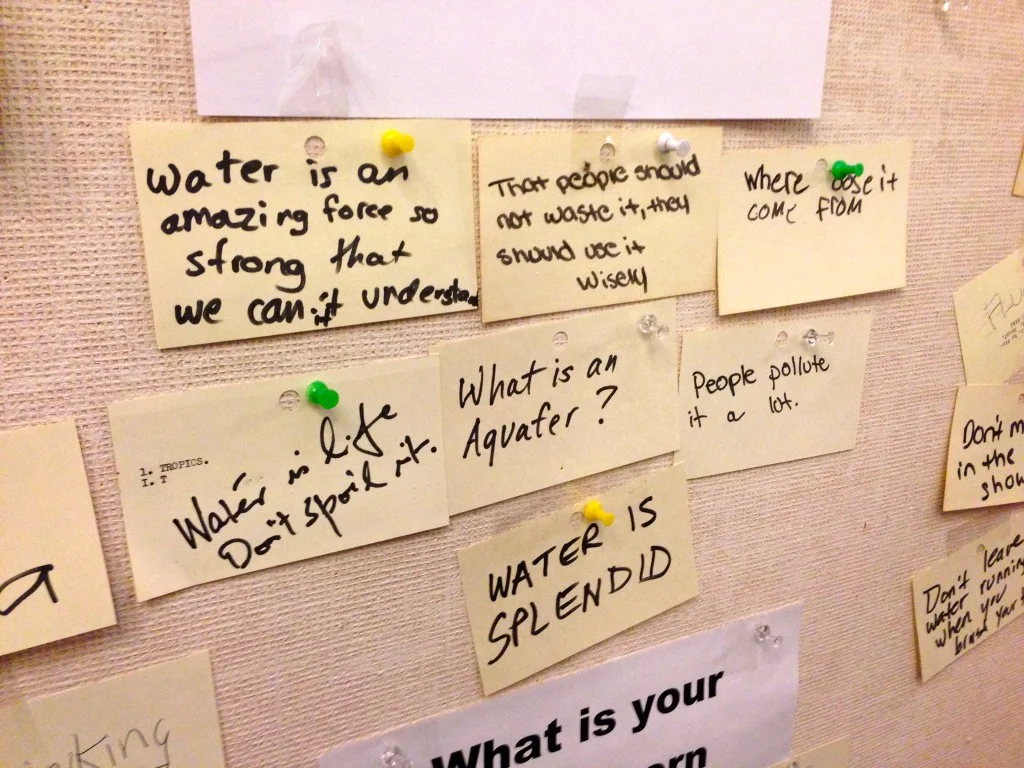 Water is an
amazing force so
strong that
we can it understand
That people should
not waste it, they
should use it
wisely
Where dose it
come from
1. TROPICS.
I. T
Water is life
Don't spoil it.
What is an
Aquafer ?
People pollute
it a lot.
WATER IS
SPLENDID
Don't
in the
show
Don't leave
water running
when you
brush your
What is your